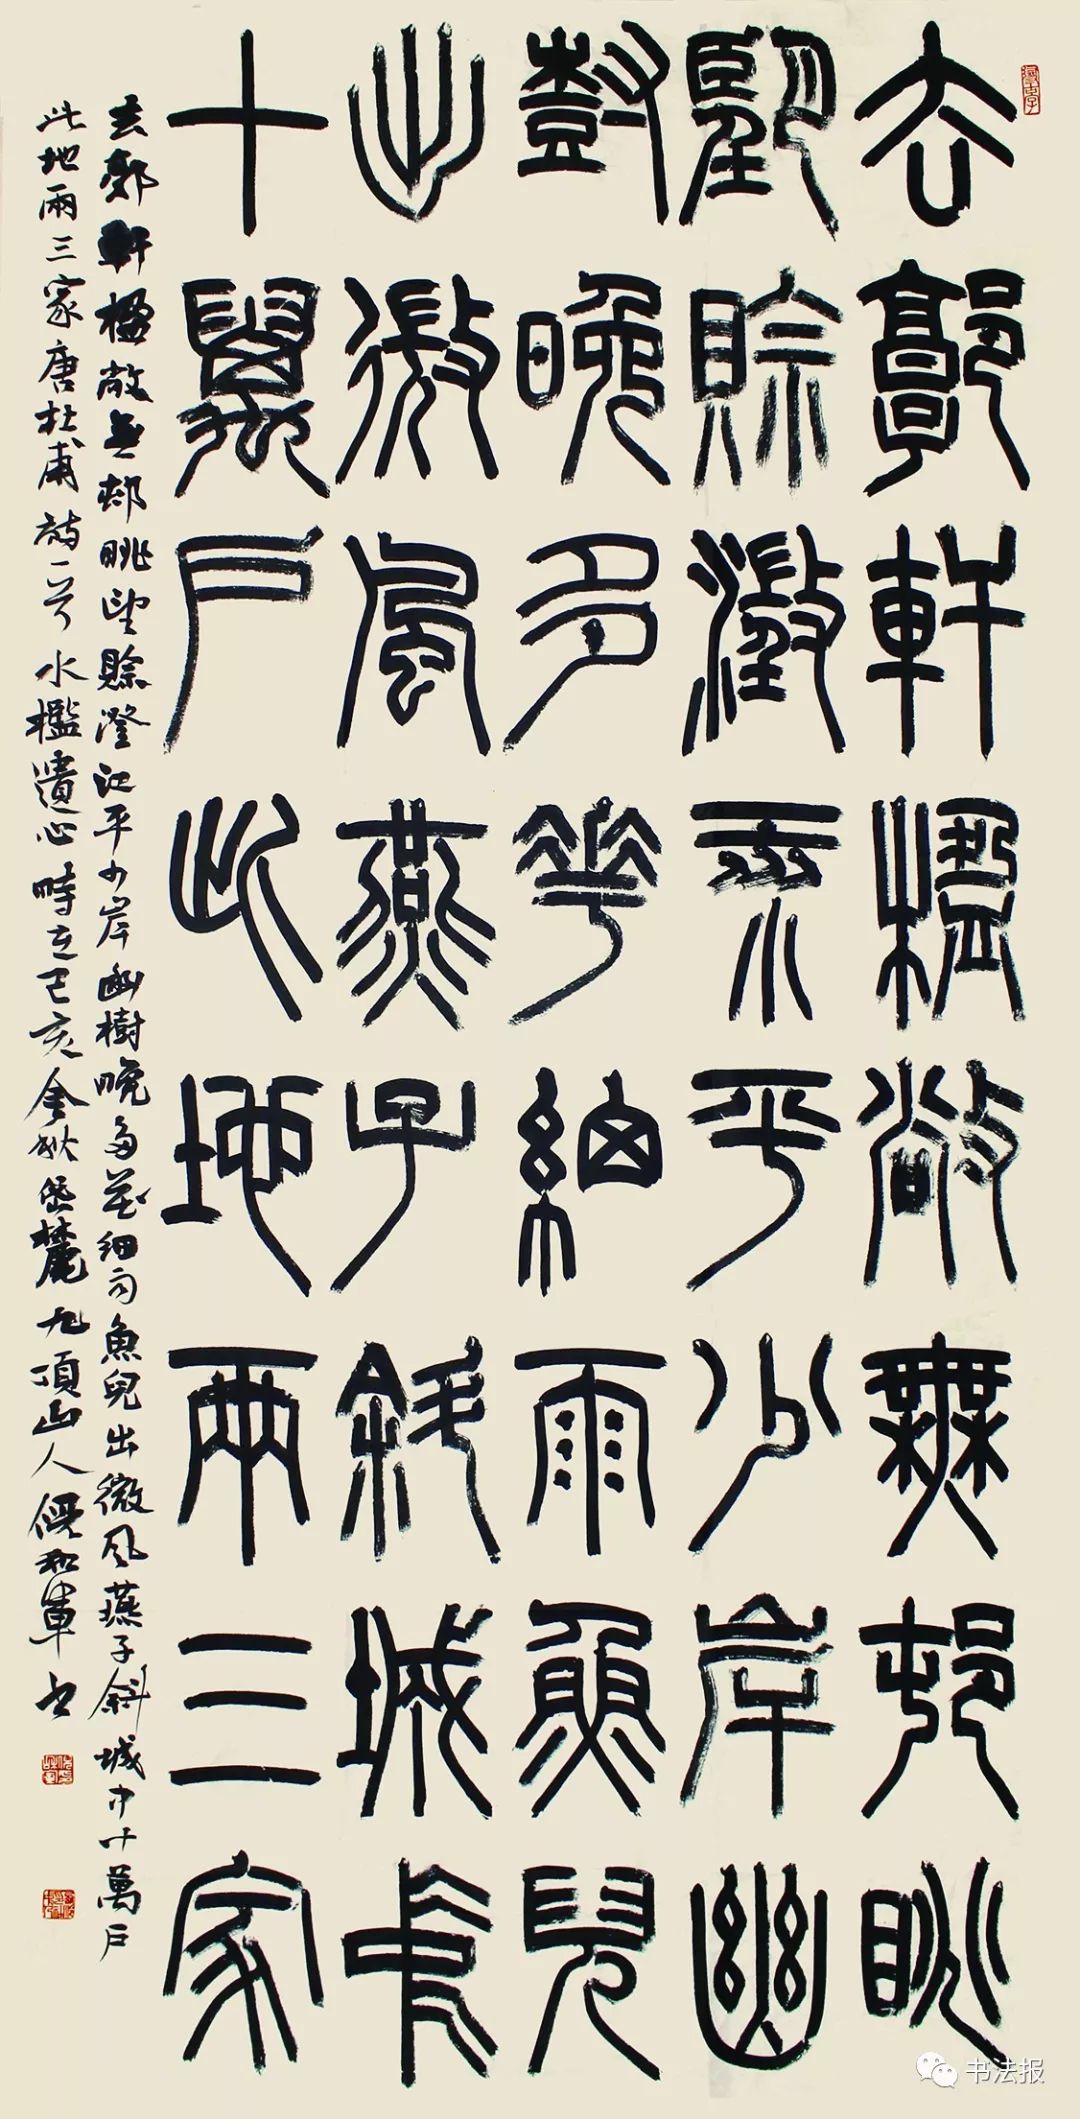 去郭軒楹敞無邨眺
望賒澂江平少岸幽
尌晚多華細雨魚兒
出微風燕子斜城中
十萬戶此地兩三家
去郭軒楹敞無邨眺望賒澄江平少岸幽樹晚多花細雨魚兒出微風燕子斜城中十萬戶
此地兩三家唐杜甫詩一首水檻遣心時在己亥金秋岱麓九頂山人倪和軍書
书法报